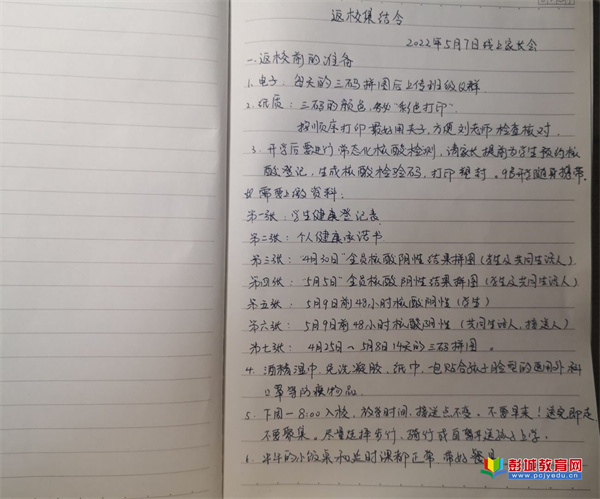 返校集结令
2022年5月7日线上家长会
一.返校前的准备
1.电子:每天的三码拼图后上传班级Q群
2.纸质:三码的颜色,务必"彩色打印".
按顺序打印最好用夹子,方便刘老师检查核对.
3.开学后要进行常态化核酸检测,请家长提前为学生预约核
酸登记,生成核酸检验码,打印塑封.9号开学随身携带.
需要上缴资料:
第一张:学生健康登记表
第二张:个人健康承诺书
第三张:"4月30日"全员核酸阴性结果拼图(学生及共同生活人)
第四张:"5月5日"全员核酸阴性结果拼图(学生及共同生活人)
第五张:5月9日前48小时核酸阴性(学生)
第六张:5月9日前48小时核酸阴性(共同生活人,接送人)
第七张:4月25日~5月8日14天的三码拼图。
4.酒精湿巾,免洗凝胶,纸巾,包贴合孩子脸型的医用外科
口罩等防疫物品
5.下周一8:00入校,放学时间,接送点不变。不要早来!送完即走
不要聚集。尽量选择步行、骑行或自驾车送孩子上学.
6.半年的小饭桌和延时课都正常,带好餐具
彭城教育网
www.pcjyedu.cn